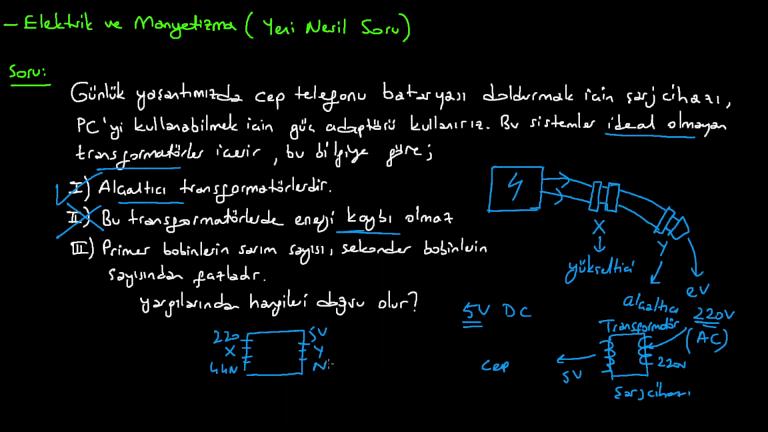 - Elektrik ve Manyetizma ( Yeni Nesil Soru )
Soru:
Günlük yaşantımızda cep telefonu bataryası doldurmak için şarj cihazı,
PC'yi kullanabilmek için güç adaptörü kullanırız. Bu sistemler ideal olmayan
transformatörler içerir, bu bilgiye göre;
I) Alçaltıcı transformatörlerdir.
II) Bu transformatörlerde enerji kaybı olmaz
III) Primer bobinlerin sarım sayısı, sekonder bobinlerin
sayısından fazladır.
yargılarından hangileri doğru olur?
X
Y
yükseltici
alçaltıcı
Transformatör
eV
220V
(AC)
5V DC
cep
5V
220V
Şarj cihazı
220
X
44N
5V
Y
N